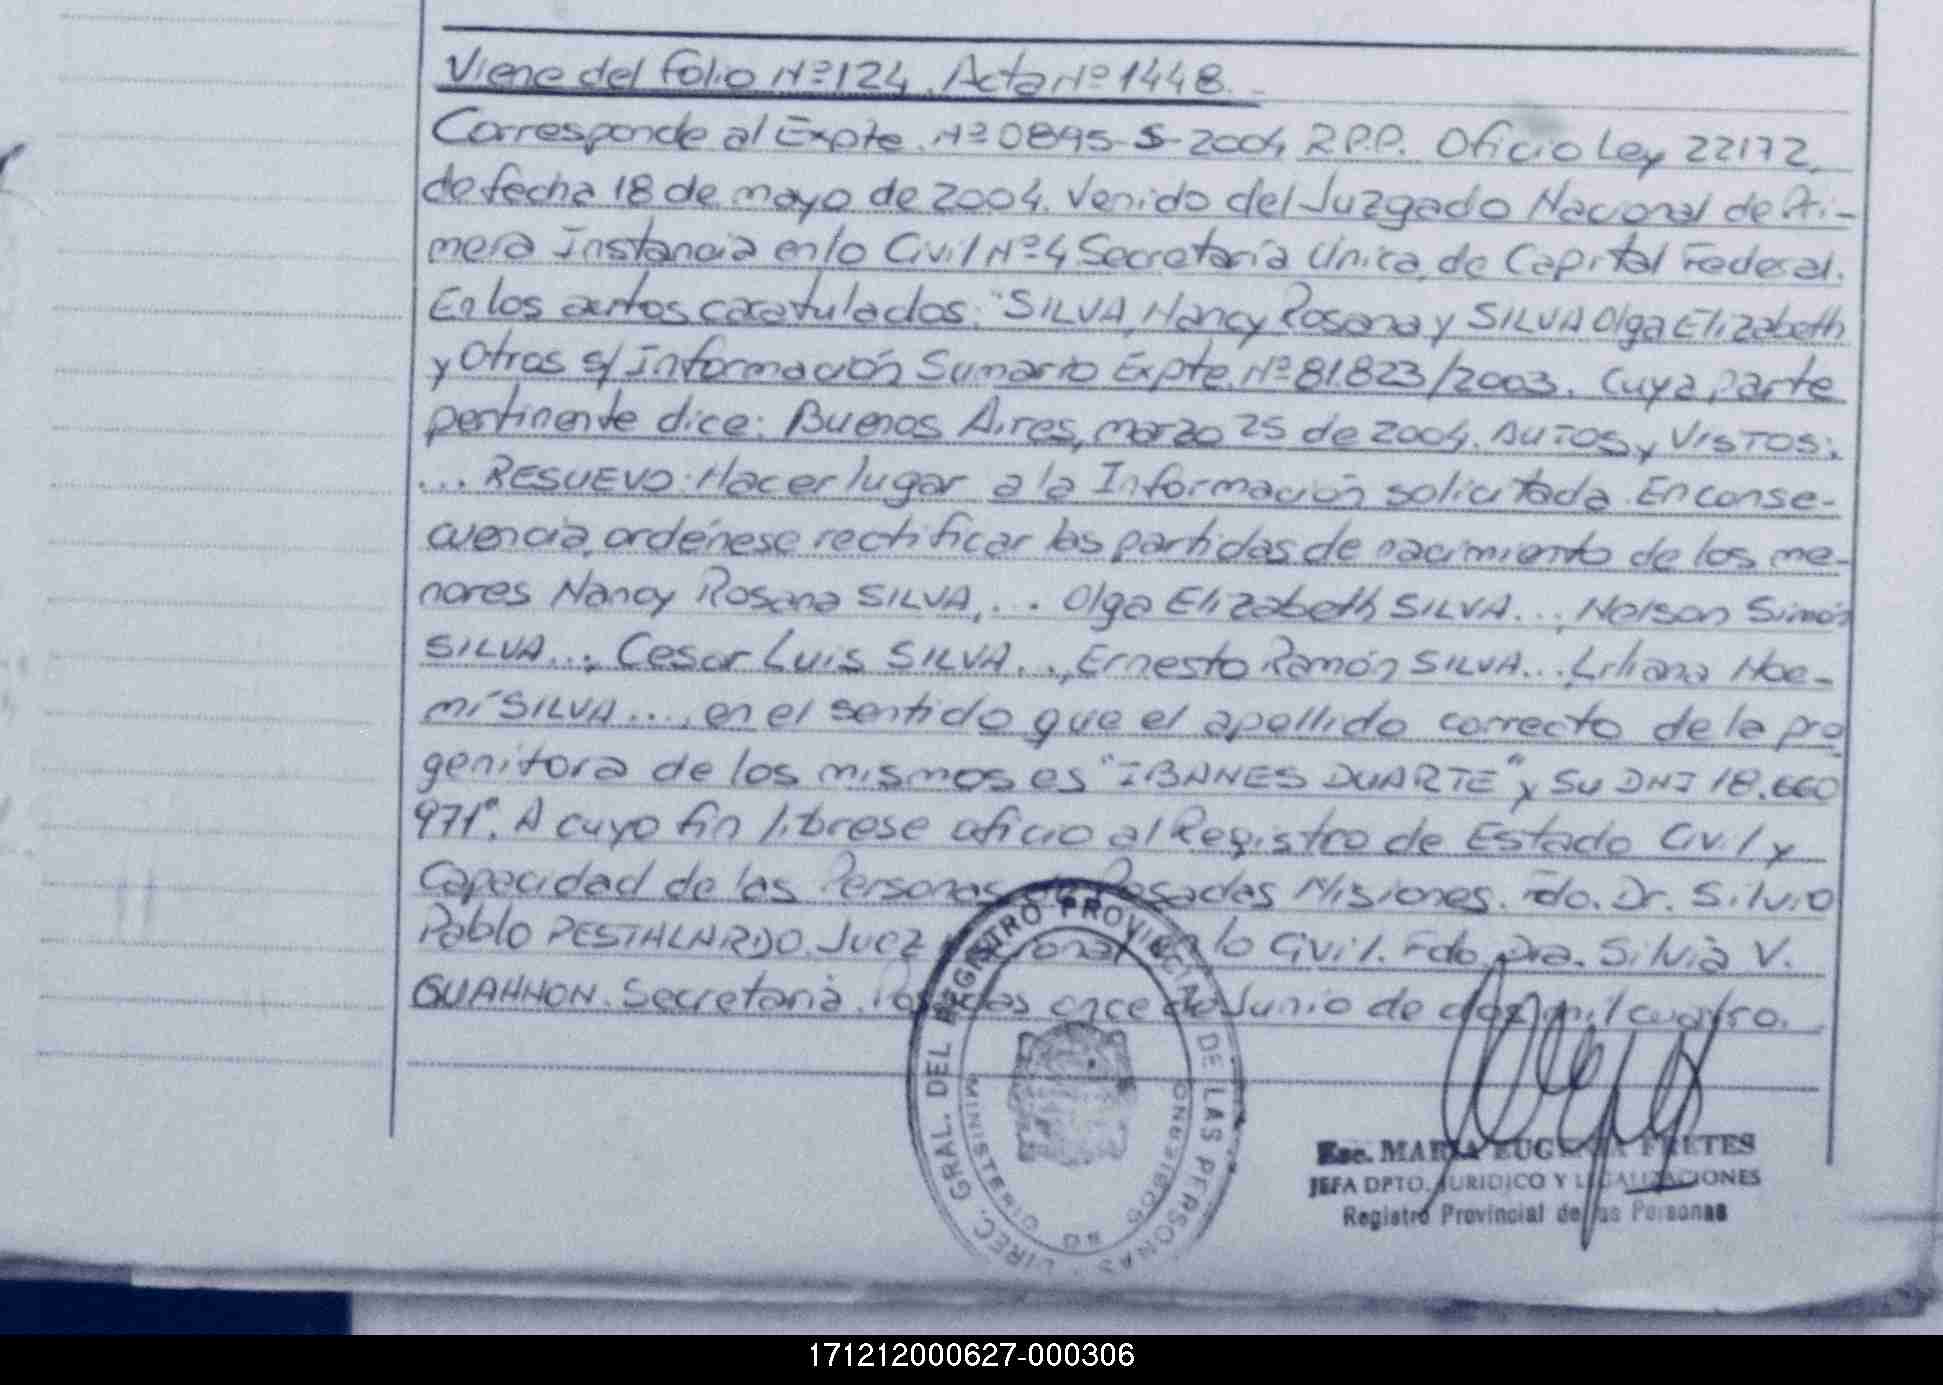 Viene del folio Nº 124. Acta Nº 1448.
Corresponde al Expte. Nº 0895-S-2004 R.P.P. Oficio Ley 22172,
de fecha 18 de mayo de 2004. Venido del Juzgado Nacional de Pri-
mera Instancia en lo Civil Nº 4 Secretaría Única, de Capital Federal.
En los autos caratulados: "SILVA, Nancy Rosana y SILVA Olga Elizabeth
y Otros s/ Información Sumario Expte. Nº 81.823/2003. Cuya parte
pertinente dice: Buenos Aires, marzo 25 de 2004. AUTOS y VISTOS:
... RESUEVO: Hacer lugar a la Información solicitada. En conse-
cuencia, ordénese rectificar las partidas de nacimiento de los me-
nores Nancy Rosana SILVA, ... Olga Elizabeth SILVA ..., Nelson Simón
SILVA ..., Cesar Luis SILVA ..., Ernesto Ramón SILVA ..., Liliana Noe-
mí SILVA ..., en el sentido que el apellido correcto de la pro
genitora de los mismos es "IBANES DUARTE" y su DNI 18.660
971". A cuyo fin líbrese oficio al Registro de Estado Civil y
Capacidad de las Personas de Posadas Misiones. Fdo. Dr. Silvio
Pablo PESTALARDO. Juez Nacional en lo Civil. Fdo. Dra. Silvia V.
GUAHNON. Secretaria. Posadas once de Junio de dos mil cuatro.
DIREC. GRAL. DEL REGISTRO PROVINCIAL DE LAS PERSONAS
MINISTERIO DE GOBIERNO
Esc. MARIA EUGENIA FRETES
JEFA DPTO. JURIDICO Y LEGALIZACIONES
Registro Provincial de las Personas
171212000627-000306